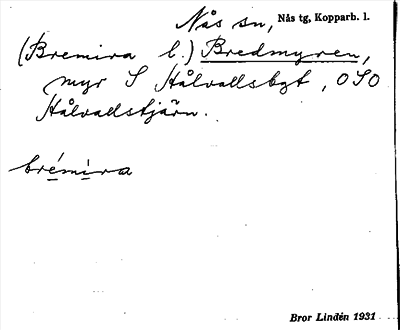 Nås sn, Nås tg, Kopparb. l.
(Bremira l.) Bredmyren,
myr S Hålvallsbgt, OSO
Hålvallstjärn.
brémìra
Bror Lindén 1931